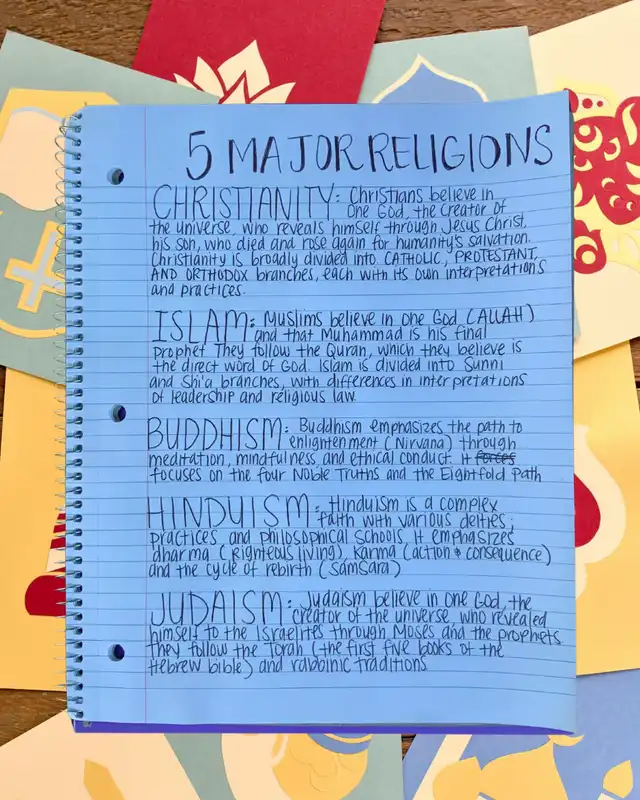 5 MAJOR RELIGIONS
CHRISTIANITY: Christians believe in
one God, the creator of
the universe, who reveals himself through Jesus Christ,
his son, who died and rose again for humanity's salvation.
Christianity is broadly divided into CATHOLIC, PROTESTANT,
AND ORTHODOX branches, each with its own interpretations
and practices.
ISLAM: Muslims believe in one God (ALLAH)
and that Muhammad is his final
prophet They follow the Quran, which they believe is
the direct word of God. Islam is divided into Sunni
and Shi'a branches, with differences in interpretations
of leadership and religious law.
BUDDHISM: Buddhism emphasizes the path to
enlightenment (Nirvana) through
meditation, mindfulness and ethical conduct. It forces
focuses on the four Noble Truths and the Eightfold Path
HINDUISM: Hinduism is a complex
faith with various deities,
practices and philosophical schools, It emphasizes
dharma (righteous living), karma (action & consequence)
and the cycle of rebirth (samsara)
JUDAISM: Judaism believe in one God, the
creator of the universe, who revealed
himself to the Israelites through Moses and the prophets
They follow the Torah (the first five books of the
Hebrew bible) and rabbinic traditions